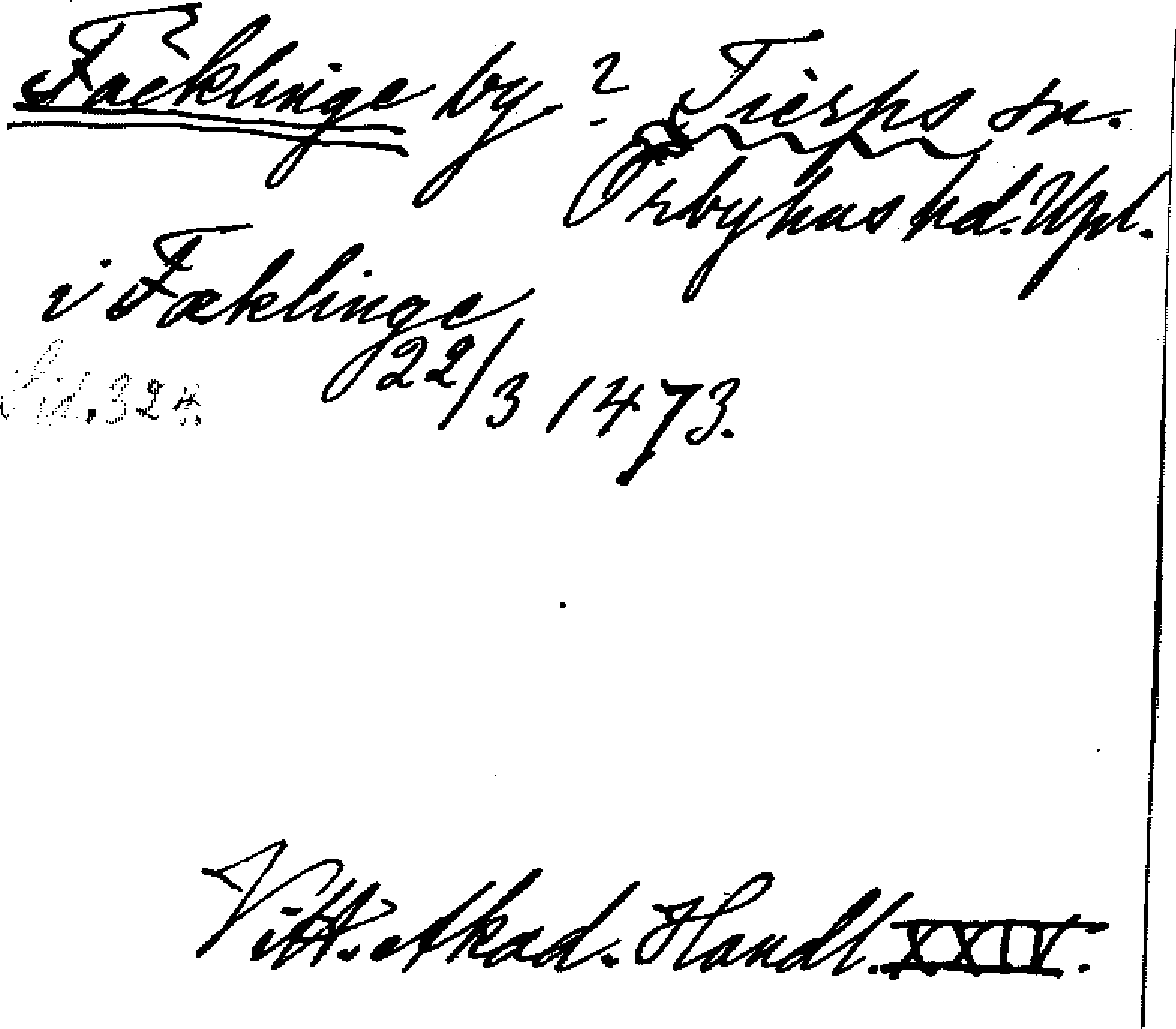 Fäcklinge by. ? Tierps sn.
Örbyhus hd. Upl.
i Fæklinge
22/3 1473.
Sid. 324.
Vitt. Akad. Handl. XXIV.